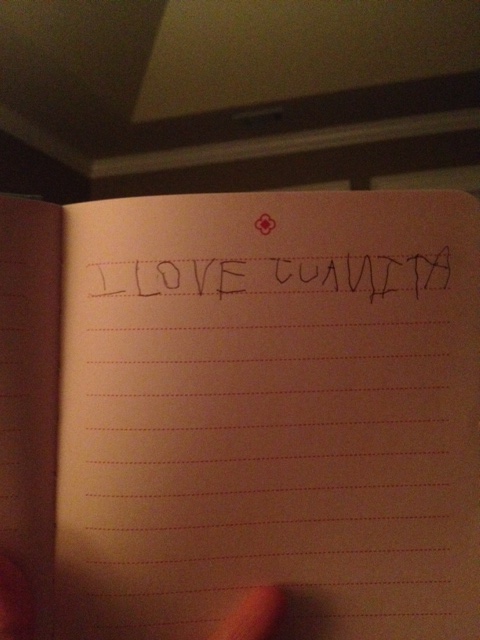 I LOVE JUANITA